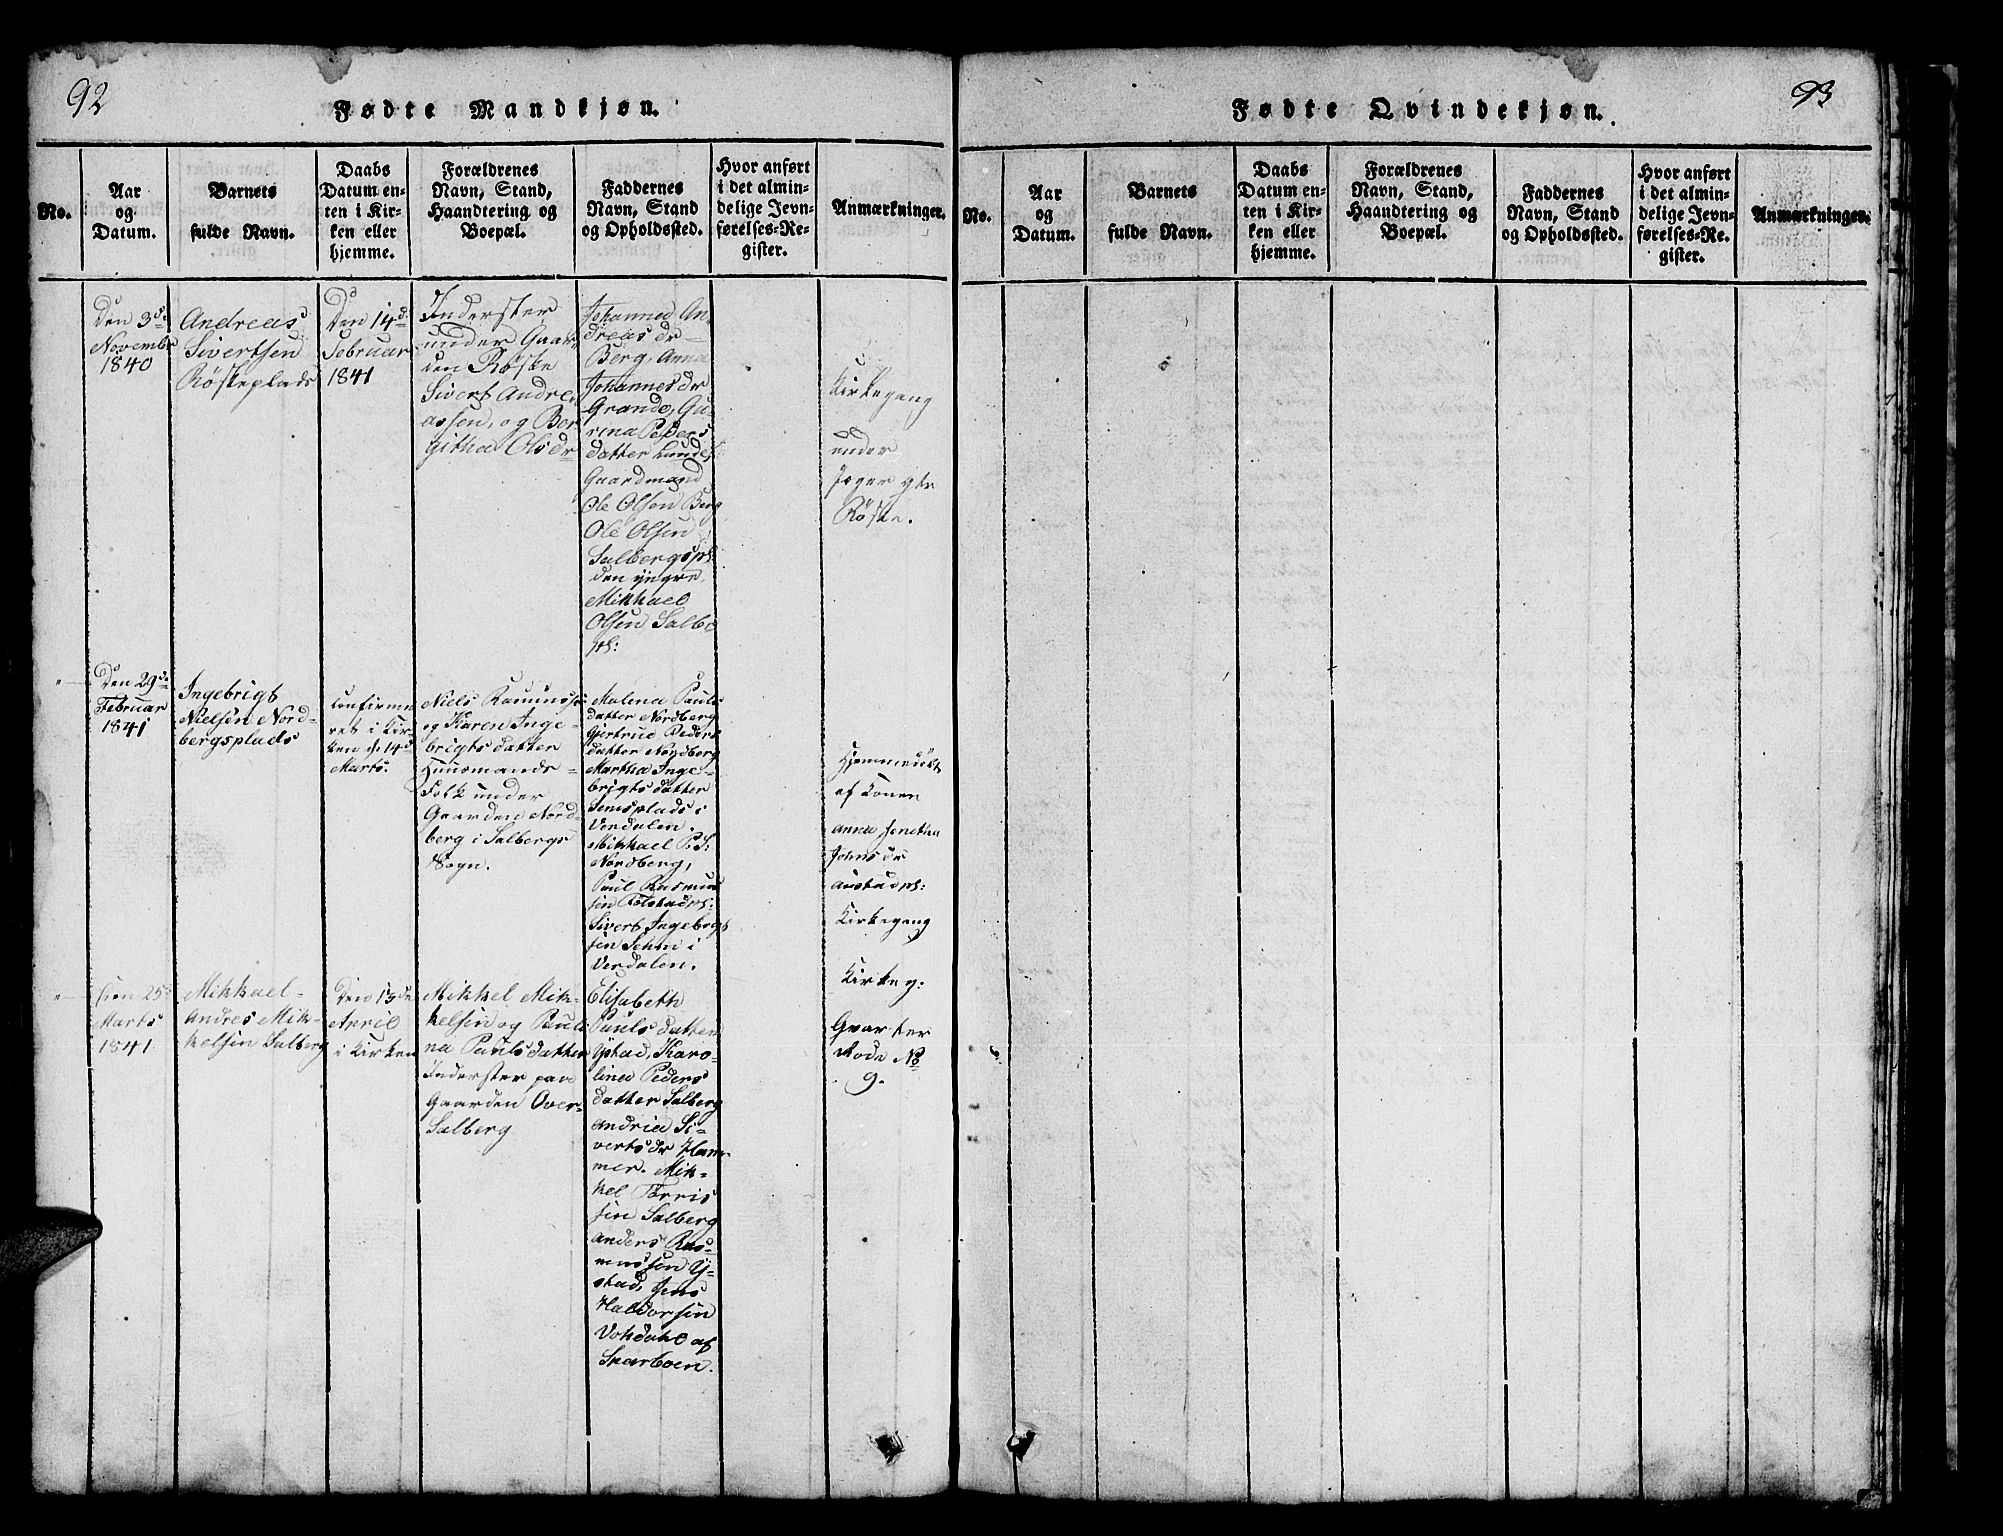 92
Fødte Mandkjøn.
No.
Aar
og
Datum.
Barnets
fulde Navn.
Daabs
Datum en-
ten i Kir-
ken eller
hjemme.
Forældrenes
Navn, Stand,
Haandtering og
Boepæl.
Faddernes
Navn, Stand
og Opholdssted.
Hvor anført
i det almin-
delige Jevn-
førelses-Re-
gister.
Anmærkninger.
Den 3d:
November
1840
Andreas
Sivertsen
Røskeplads
Den 14d:
Februar
1841
Inderster
under Gaar-
den Røske
Sivert Andre-
assen, og Ber
githa Olsdr
Johanna An-
dreas dr
Berg, Anna
Johannesdr
Grande, Gu-
rina Peders
datter Lunde,
Gaardmand
Ole Olsen Berg
Ole Olsen
Salbergspl:
den yngre,
Mikkael
Olsen Salb:
pl:
Kirkegang
under
Røske.
Den 29d:
Februar
1841
Ingebrigt
Nielsen Nord-
bergsplads
confirme-
ret i Kir-
ken d. 14d
Marts.
Niels
og Karen Inge-
brigtsdatter
Huusmands-
Folk under
Gaarden Nord-
berg i Salbergs
Sogn.
Malena Pauls
datter Nordberg
Gjertrud Peders
datter Nordberg
Martha Inge-
brigtsdatter
Semsplads i
Verdalen.
Mikkael P. S.
Nordberg,
Paul Rasmus
sen Tolstadpl:
Sivert Ingebrigt
sen Sehm i
Verdalen.
Hjemmedøbt
af Konen
Anna
Johnsdr
Austadpl:
Kirkegang
Den 25d
Marts
1841
Mikkael
Andres Mik-
kelsen Salberg
Den 13de
April
i Kirken
Mikkel Mik-
kelsen og Pauli
na Paulsdatter
Inderster paa
Gaarden Over-
Salberg
Elisabeth
Paulsdatter
Ystad, Karo-
lina Peders
datter Salberg
Andria Si-
vertsdr Ham-
mer. Mik-
kel Torris
sen Salberg
Anders Ras-
mussen Y-
stad, Jens
Haldorsen
Vohdahl af
Skarboen.
Kirkeg:
Qvarter
Rode No
9.
93
Fødte Qvindekjøn.
No.
Aar
og
Datum.
Barnets
fulde Navn.
Daabs
Datum en-
ten i Kir-
ken eller
hjemme.
Forældrenes
Navn, Stand,
Haandtering og
Boepæl.
Faddernes
Navn, Stand
og Opholdssted.
Hvor anført
i det almin-
delige Jevn-
førelses-Re-
gister.
Anmærkninger.